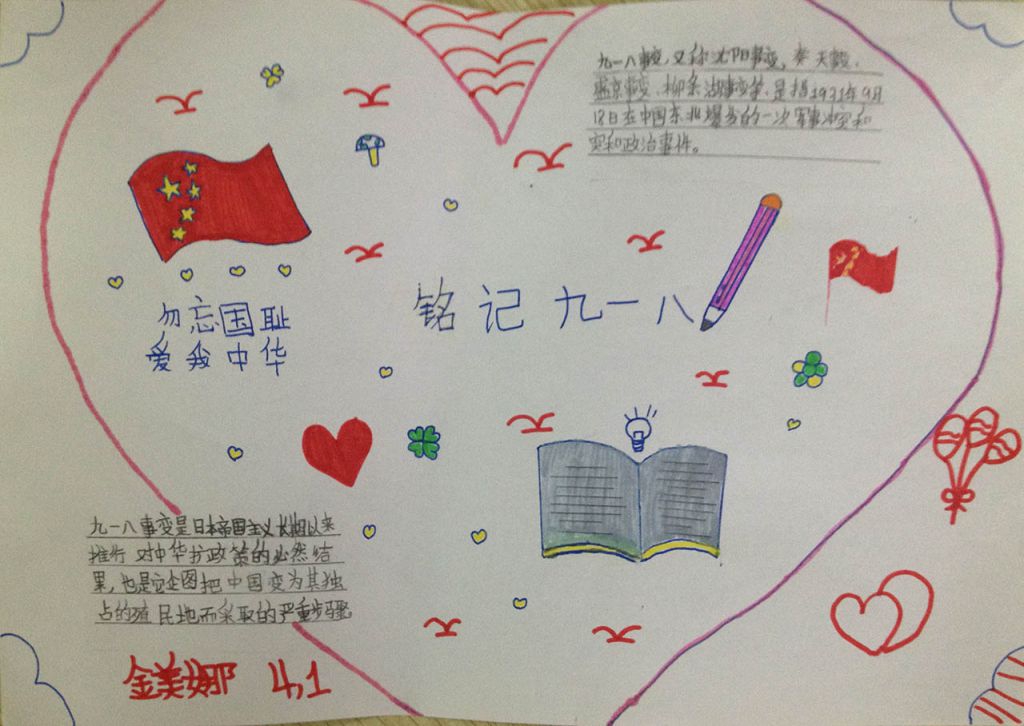 九一八事变，又称沈阳事变、奉天事变、
盛京事变、柳条湖事变等，是指1931年9月
18日在中国东北爆发的一次军事冲突和
突和政治事件。
铭记九一八
勿忘国耻
爱我中华
九一八事变是日本帝国主义长期以来
推行对中华扩政策的必然结
果，也是它企图把中国变为其独
占的殖民地而采取的严重步骤
金美娜 4,1